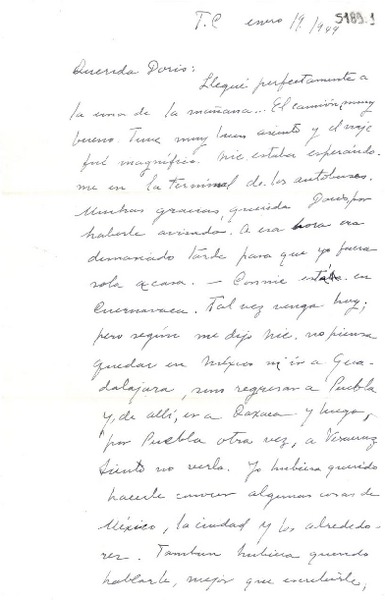 T.C enero /9/949
5189.1
Querida Doris:
Llegué perfectamente a
la una de la mañana... El camión, muy
bueno. Tuve muy buen asiento y el viaje
fué magnífico. Nic estaba esperándo-
me en la terminal de los autobuses.
Muchas gracias, querida Doris, por
haberle avisado. A esa hora era
demasiado tarde para que yo fuera
sola a casa. — Connie está en
Cuernavaca. Tal vez venga hoy;
pero según me dijo Nic, no piensa
quedar en México ni ir a Gua-
dalajara, sino regresar a Puebla
y, de allí, ir a Oaxaca y luego,
por Puebla otra vez, a Veracruz
Siento no verla. Yo hubiera querido
hacerle conocer algunas cosas de
México, la ciudad y los alrededo-
rez. Tambien hubiera querido
hablarle, mejor que escribirle,